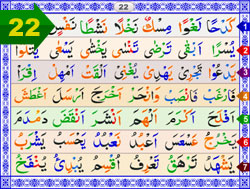 22
22
كَدْحًا لَغْوًا مِسْكٌ نَخْلًا نَشْطًا نَفْسٍ 1
يُسْرًا تَرْضٰى تَنْسٰى يَخْشٰى يَسْعٰى يَتْلُوا 2
يَدْعُوا تَجْرِيْ يَهْدِيْ يُغْنِيْ اَلْقَتْ اَمْهِلْ اِقْرَأْ 3
فَارْغَبْ فَانْصَبْ وَانْحَرْ اَخْرَجَ اَرْسَلَ اَغْطَشَ 4
اَفْلَحَ اَكْرَمَ اَلْهَمَ اَنْشَرَ اَنْقَضَ دَمْدَمَ 5
يُخْرِجُ عَسْعَسَ اَعْبُدُ نَعْبُدُ يَحْسَبُ يَشْرَبُ 6
يَشْهَدُ تَرْهَقُ تَعْرِفُ اُقْسِمُ يُبْدِئُ 7